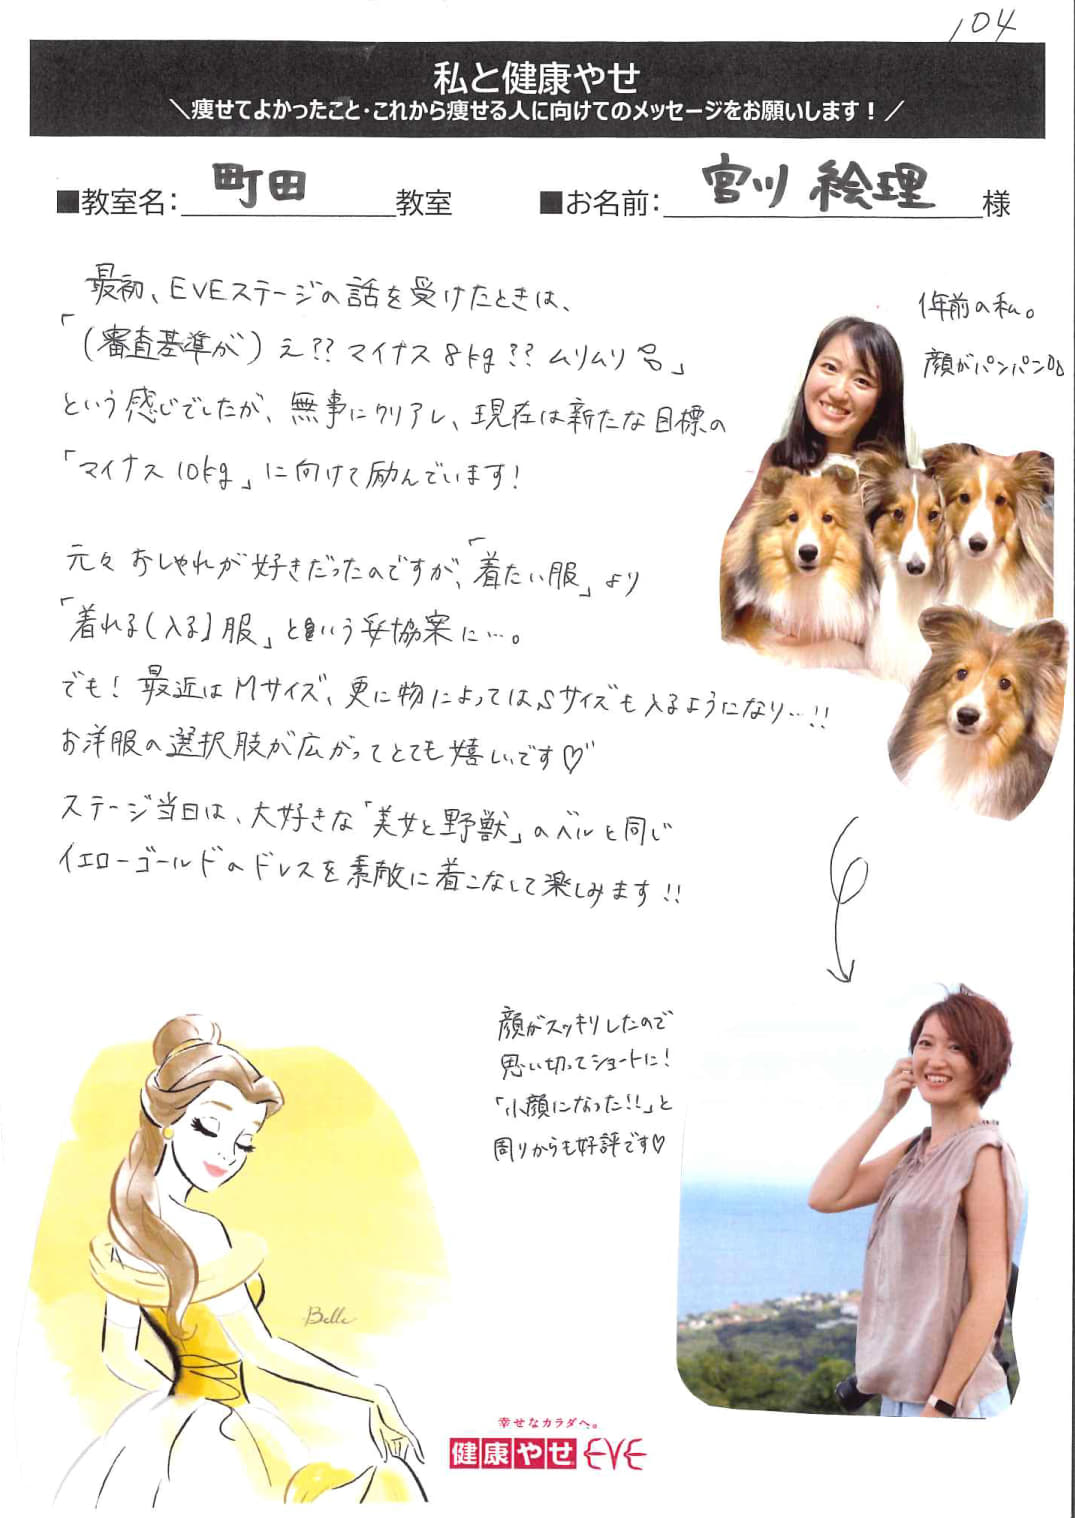 104
私と健康やせ
＼痩せてよかったこと・これから痩せる人に向けてのメッセージをお願いします！／
■教室名：町田教室 ■お名前：宮川 絵理様
最初、EVEステージの話を受けたときは、
「（審査基準が）え？？マイナス8kg？？ムリムリ」
という感じでしたが、無事にクリアし、現在は新たな目標の
「マイナス10kg」に向けて励んでいます！
元々おしゃれが好きだったのですが、「着たい服」より
「着れる（入る）服」という妥協案に…。
でも！最近はMサイズ、更に物によってはSサイズも入るようになり…!!
お洋服の選択肢が広がってとても嬉しいです♡
ステージ当日は、大好きな「美女と野獣」のベルと同じ
イエローゴールドのドレスを素敵に着こなして楽しみます!!
1年前の私。
顔がパンパン
顔がスッキリしたので
思い切ってショートに！
「小顔になった!!」と
周りからも好評です♡
Belle
幸せなカラダへ。
健康やせEVE